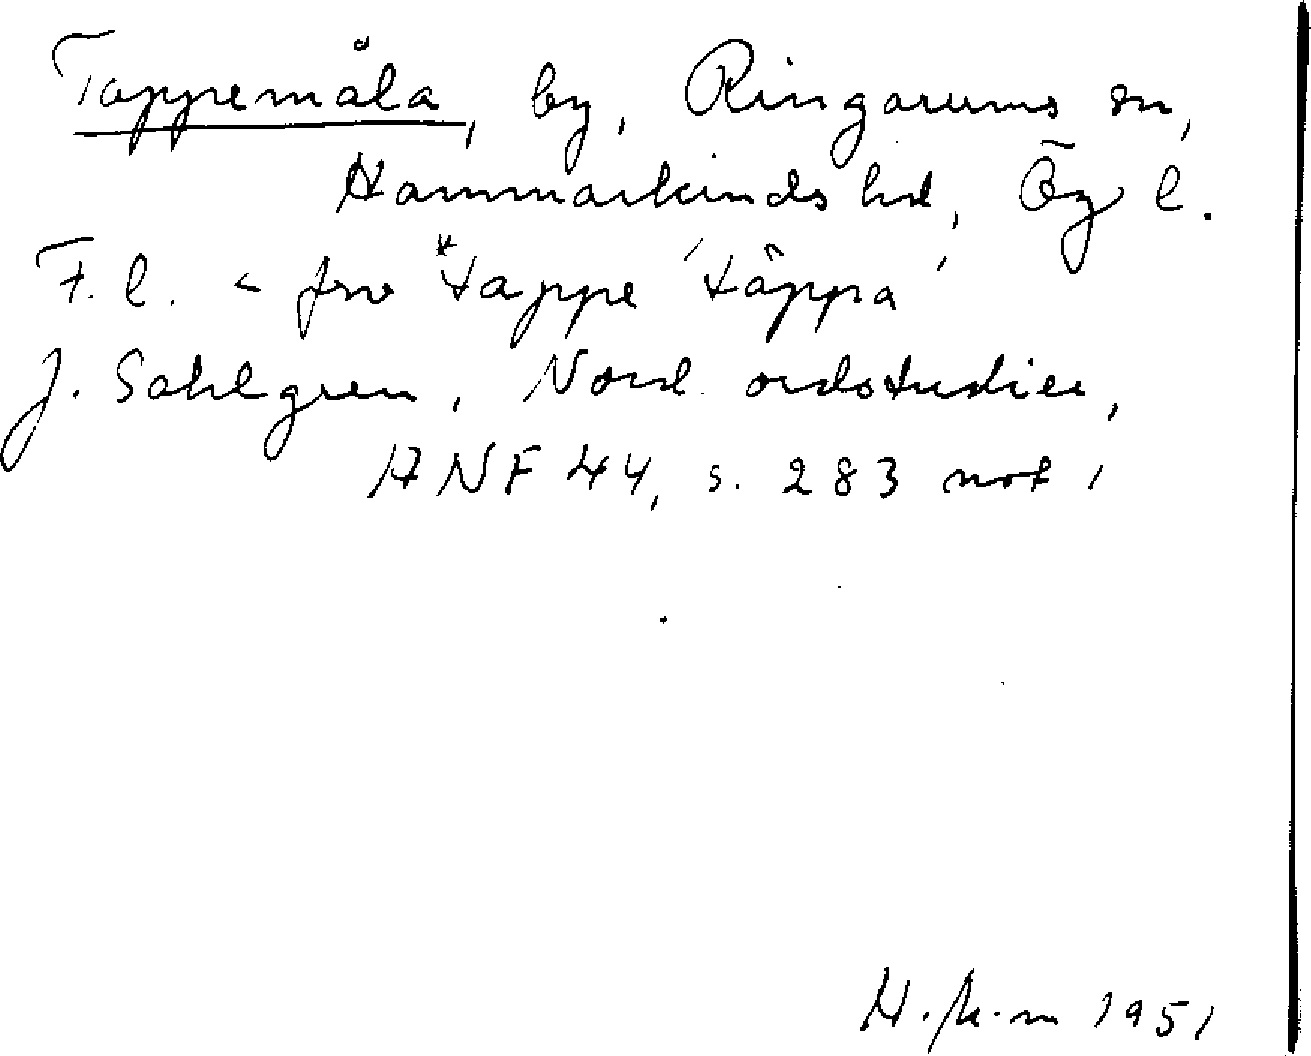 Tappemåla, by, Ringarums sn,
Hammarkinds hd, Ög l.
F. l. < fno *tappe 'täppa'
J. Sahlgren, Nord. ordstudier,
ANF 44, s. 283 not 1
1951